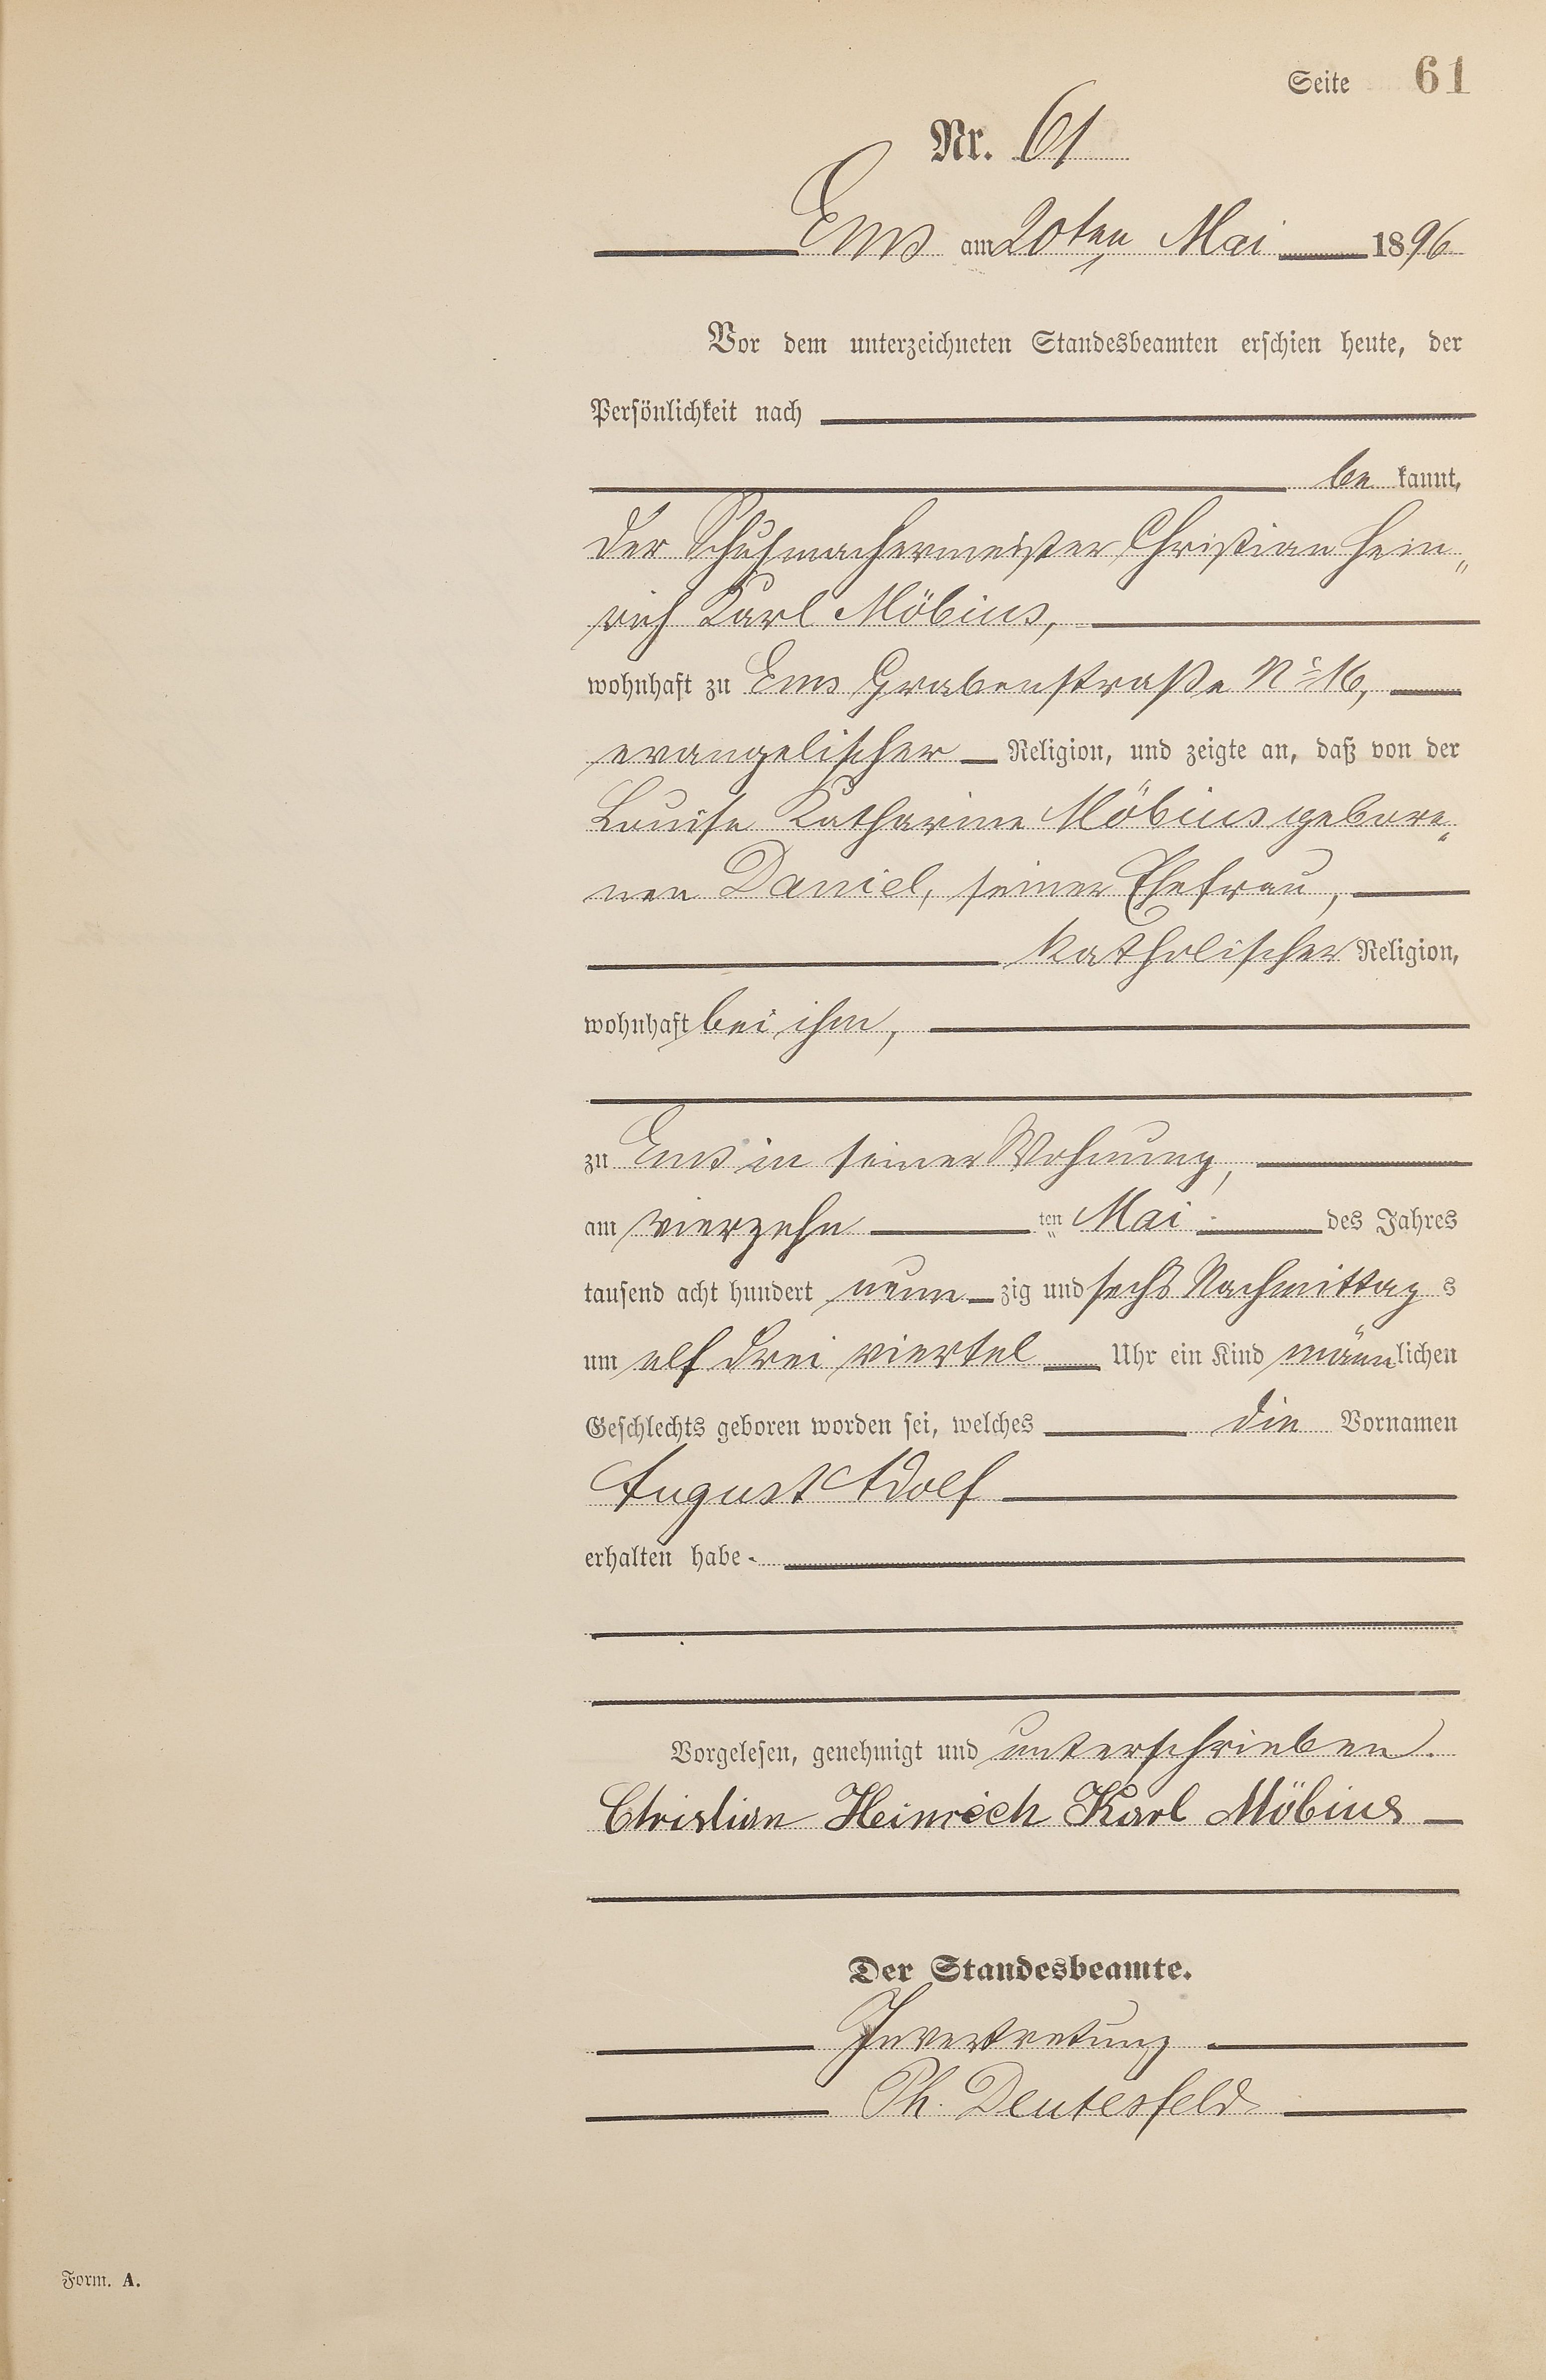 Seite 61
Nr. 61
Ems am 20ten Mai 1896
Vor dem unterzeichneten Standesbeamten erschien heute, der
Persönlichkeit nach
be kannt,
der Schuhmachermeister Christian Hein„
rich Karl Möbius,
wohnhaft zu Ems Grabenstraße No 16,
evangelischer Religion, und zeigte an, daß von der
Louise Katharine Möbius gebore„
nen Daniel, seiner Ehefrau,
katholischer Religion,
wohnhaft bei ihm,
zu Ems in seiner Wohnung,
am vierzehn ten Mai des Jahres
tausend acht hundert neun zig und sechs Nachmittag s
um elf drei viertel Uhr ein Kind männlichen
Geschlechts geboren worden sei, welches die Vornamen
August Adolf
erhalten habe.
Vorgelesen, genehmigt und unterschrieben.
Christian Heinrich Karl Möbius
Der Standesbeamte.
In Vertretung
Ph. Deutesfeld
Form. A.